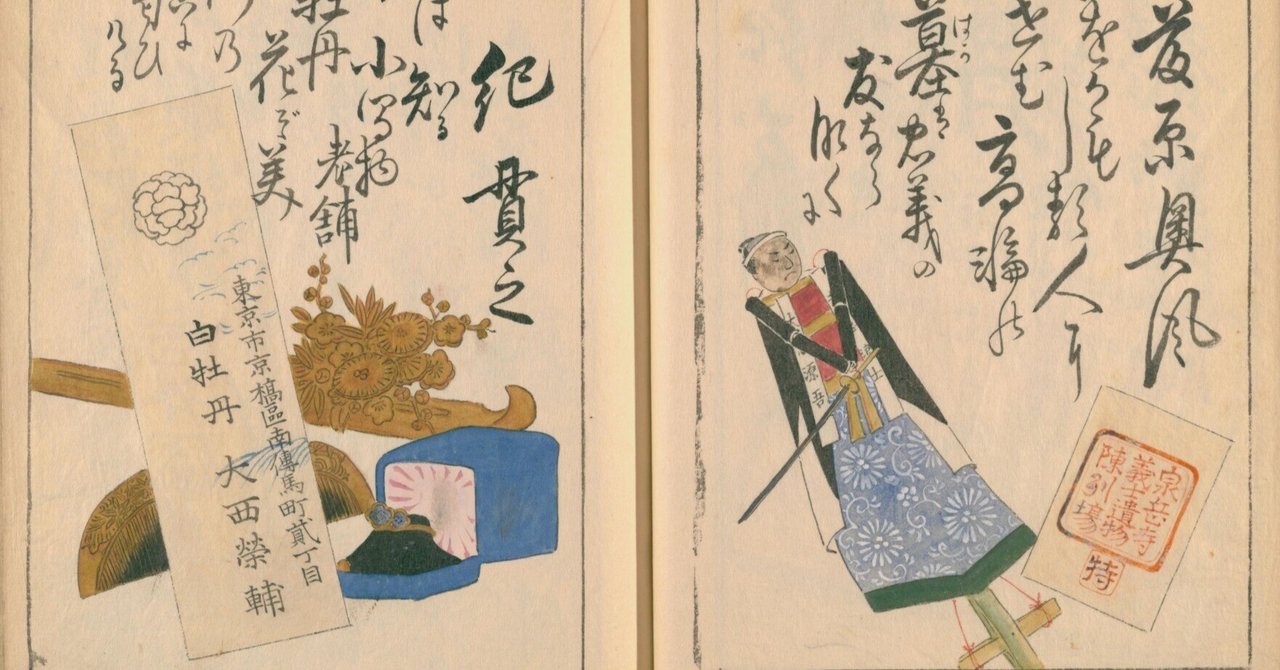 藤原奥風
をかも
しる人に
せむ
高輪の
墓は忠義の
はか
友なら
なくに
源吾
泉岳寺
義士遺物
陳列場
特
紀貫之
知る
小間物
老舗
牡丹
花ぞ美
乃
ける
東京市京橋區南傳馬町貳丁目
白牡丹 大西榮輔